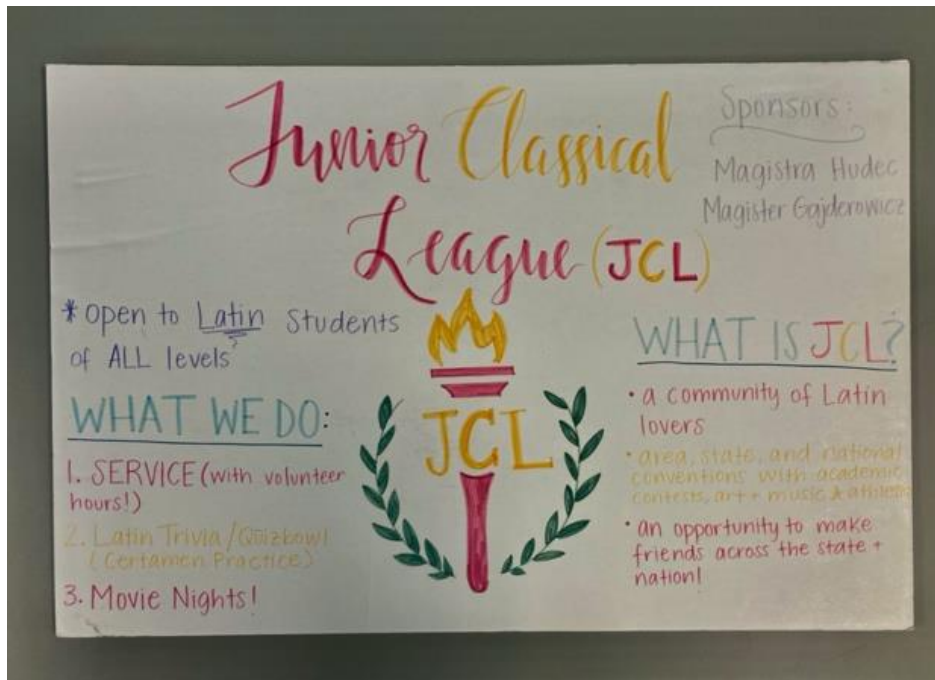 Junior Classical
League (JCL)
Sponsors:
Magistra Hudec
Magister Gajderowicz
* open to Latin students
of ALL levels
WHAT WE DO:
1. SERVICE (with volunteer
hours!)
2. Latin Trivia/Quizbowl
(Certamen Practice)
3. Movie Nights!
JCL
WHAT IS JCL?
• a community of Latin
lovers
• area, state, and national
conventions with academic
contests, art + music &
• an opportunity to make
friends across the state +
nation!